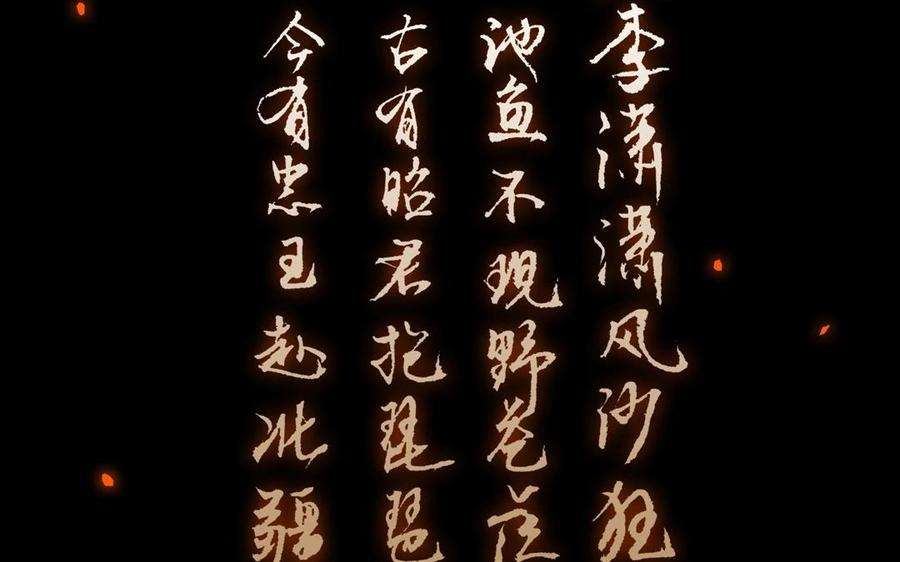 李潇潇风沙狂
池鱼不现野苍茫
古有昭君抱琵琶
今有忠王赴北疆